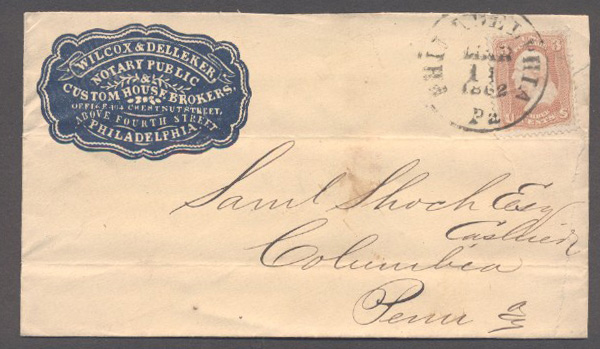 WILCOX & DELLEKER,
NOTARY PUBLIC
&
CUSTOM HOUSE BROKERS,
OFFICE 404 CHESTNUT STREET,
ABOVE FOURTH STREET
PHILADELPHIA.
PHILADELPHIA
MAR
11
1862
Pa
3 3
U S
CENTS
Saml Shoch Esq
Cashier
Columbia
Penn a